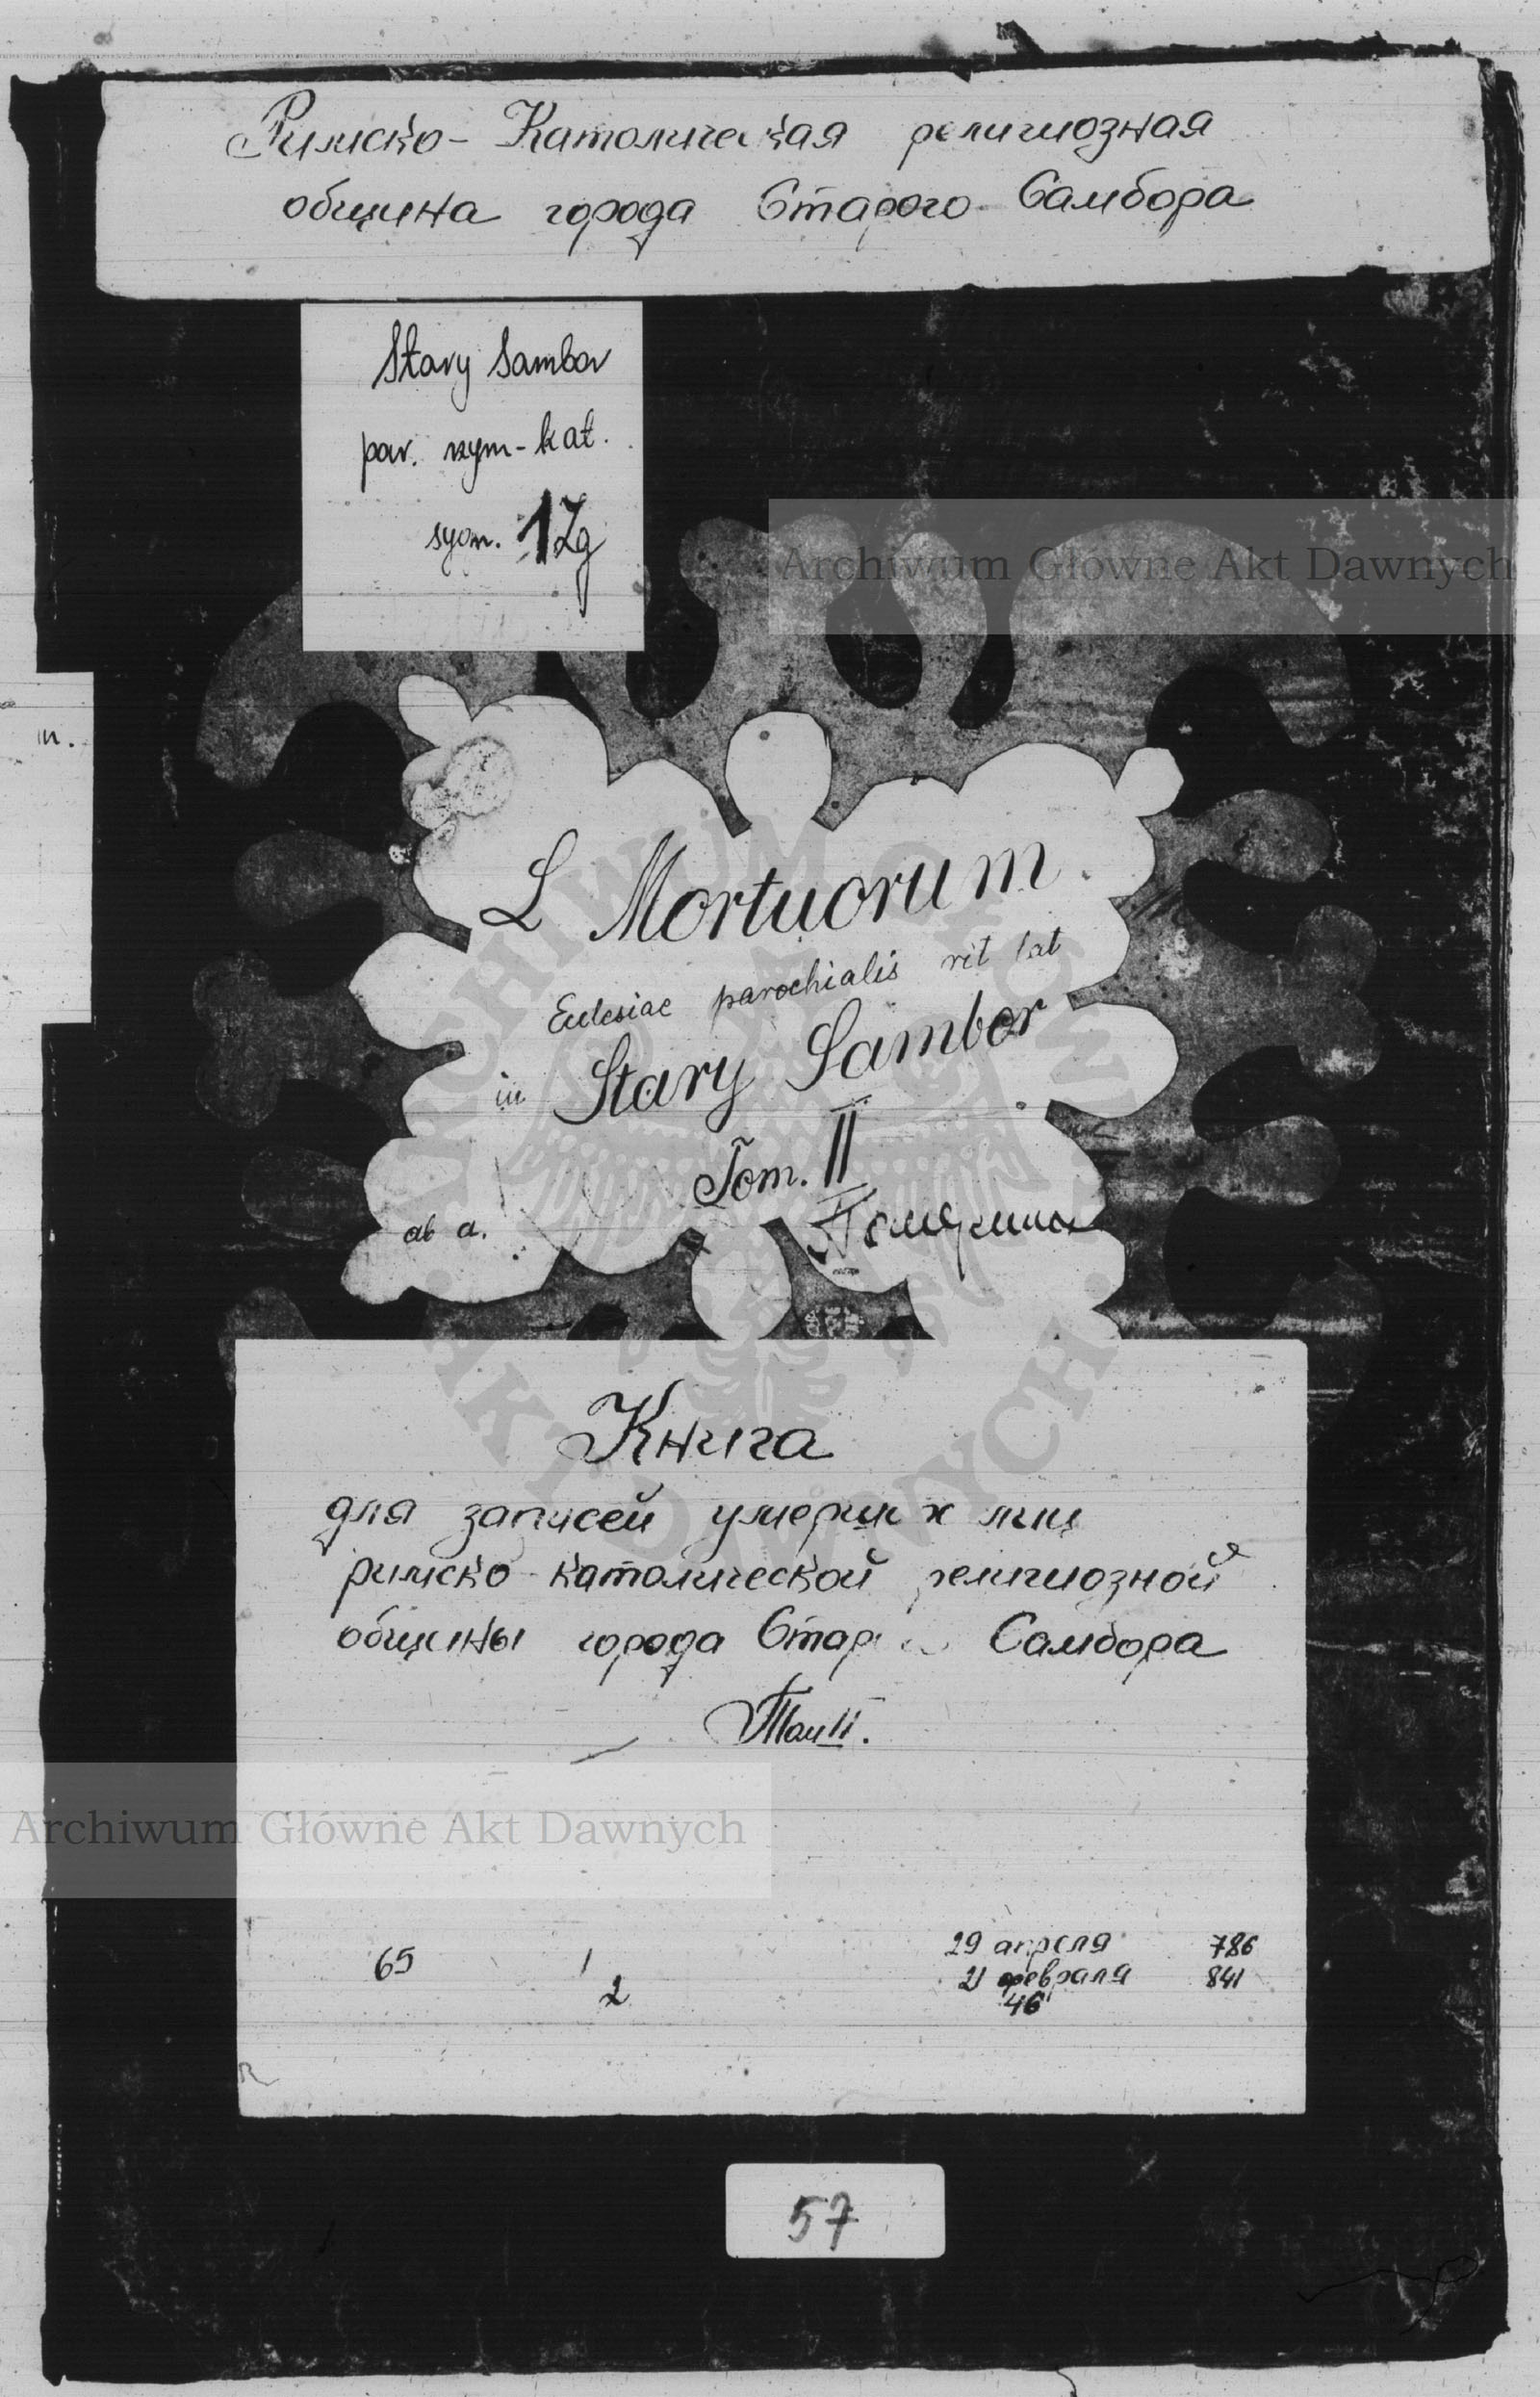 Римско-Католическая религиозная
община города Старого Самбора
Stary Sambor
par. rzym-kat.
sygn. 1Zg
Archiwum Główne Akt Dawnych
L Mortuorum
Eclesiae parochialis rit lat
in Stary Sambor
Tom. II
ab a.
Книга
для записей умерших лиц
римско-католической религиозной
общины города Стар Самбора
Том II.
Archiwum Główne Akt Dawnych
65 1 29 апреля 786
2 21 февраля 841
46
57
ARCHIWUM GŁÓWNE AKT DAWNYCH